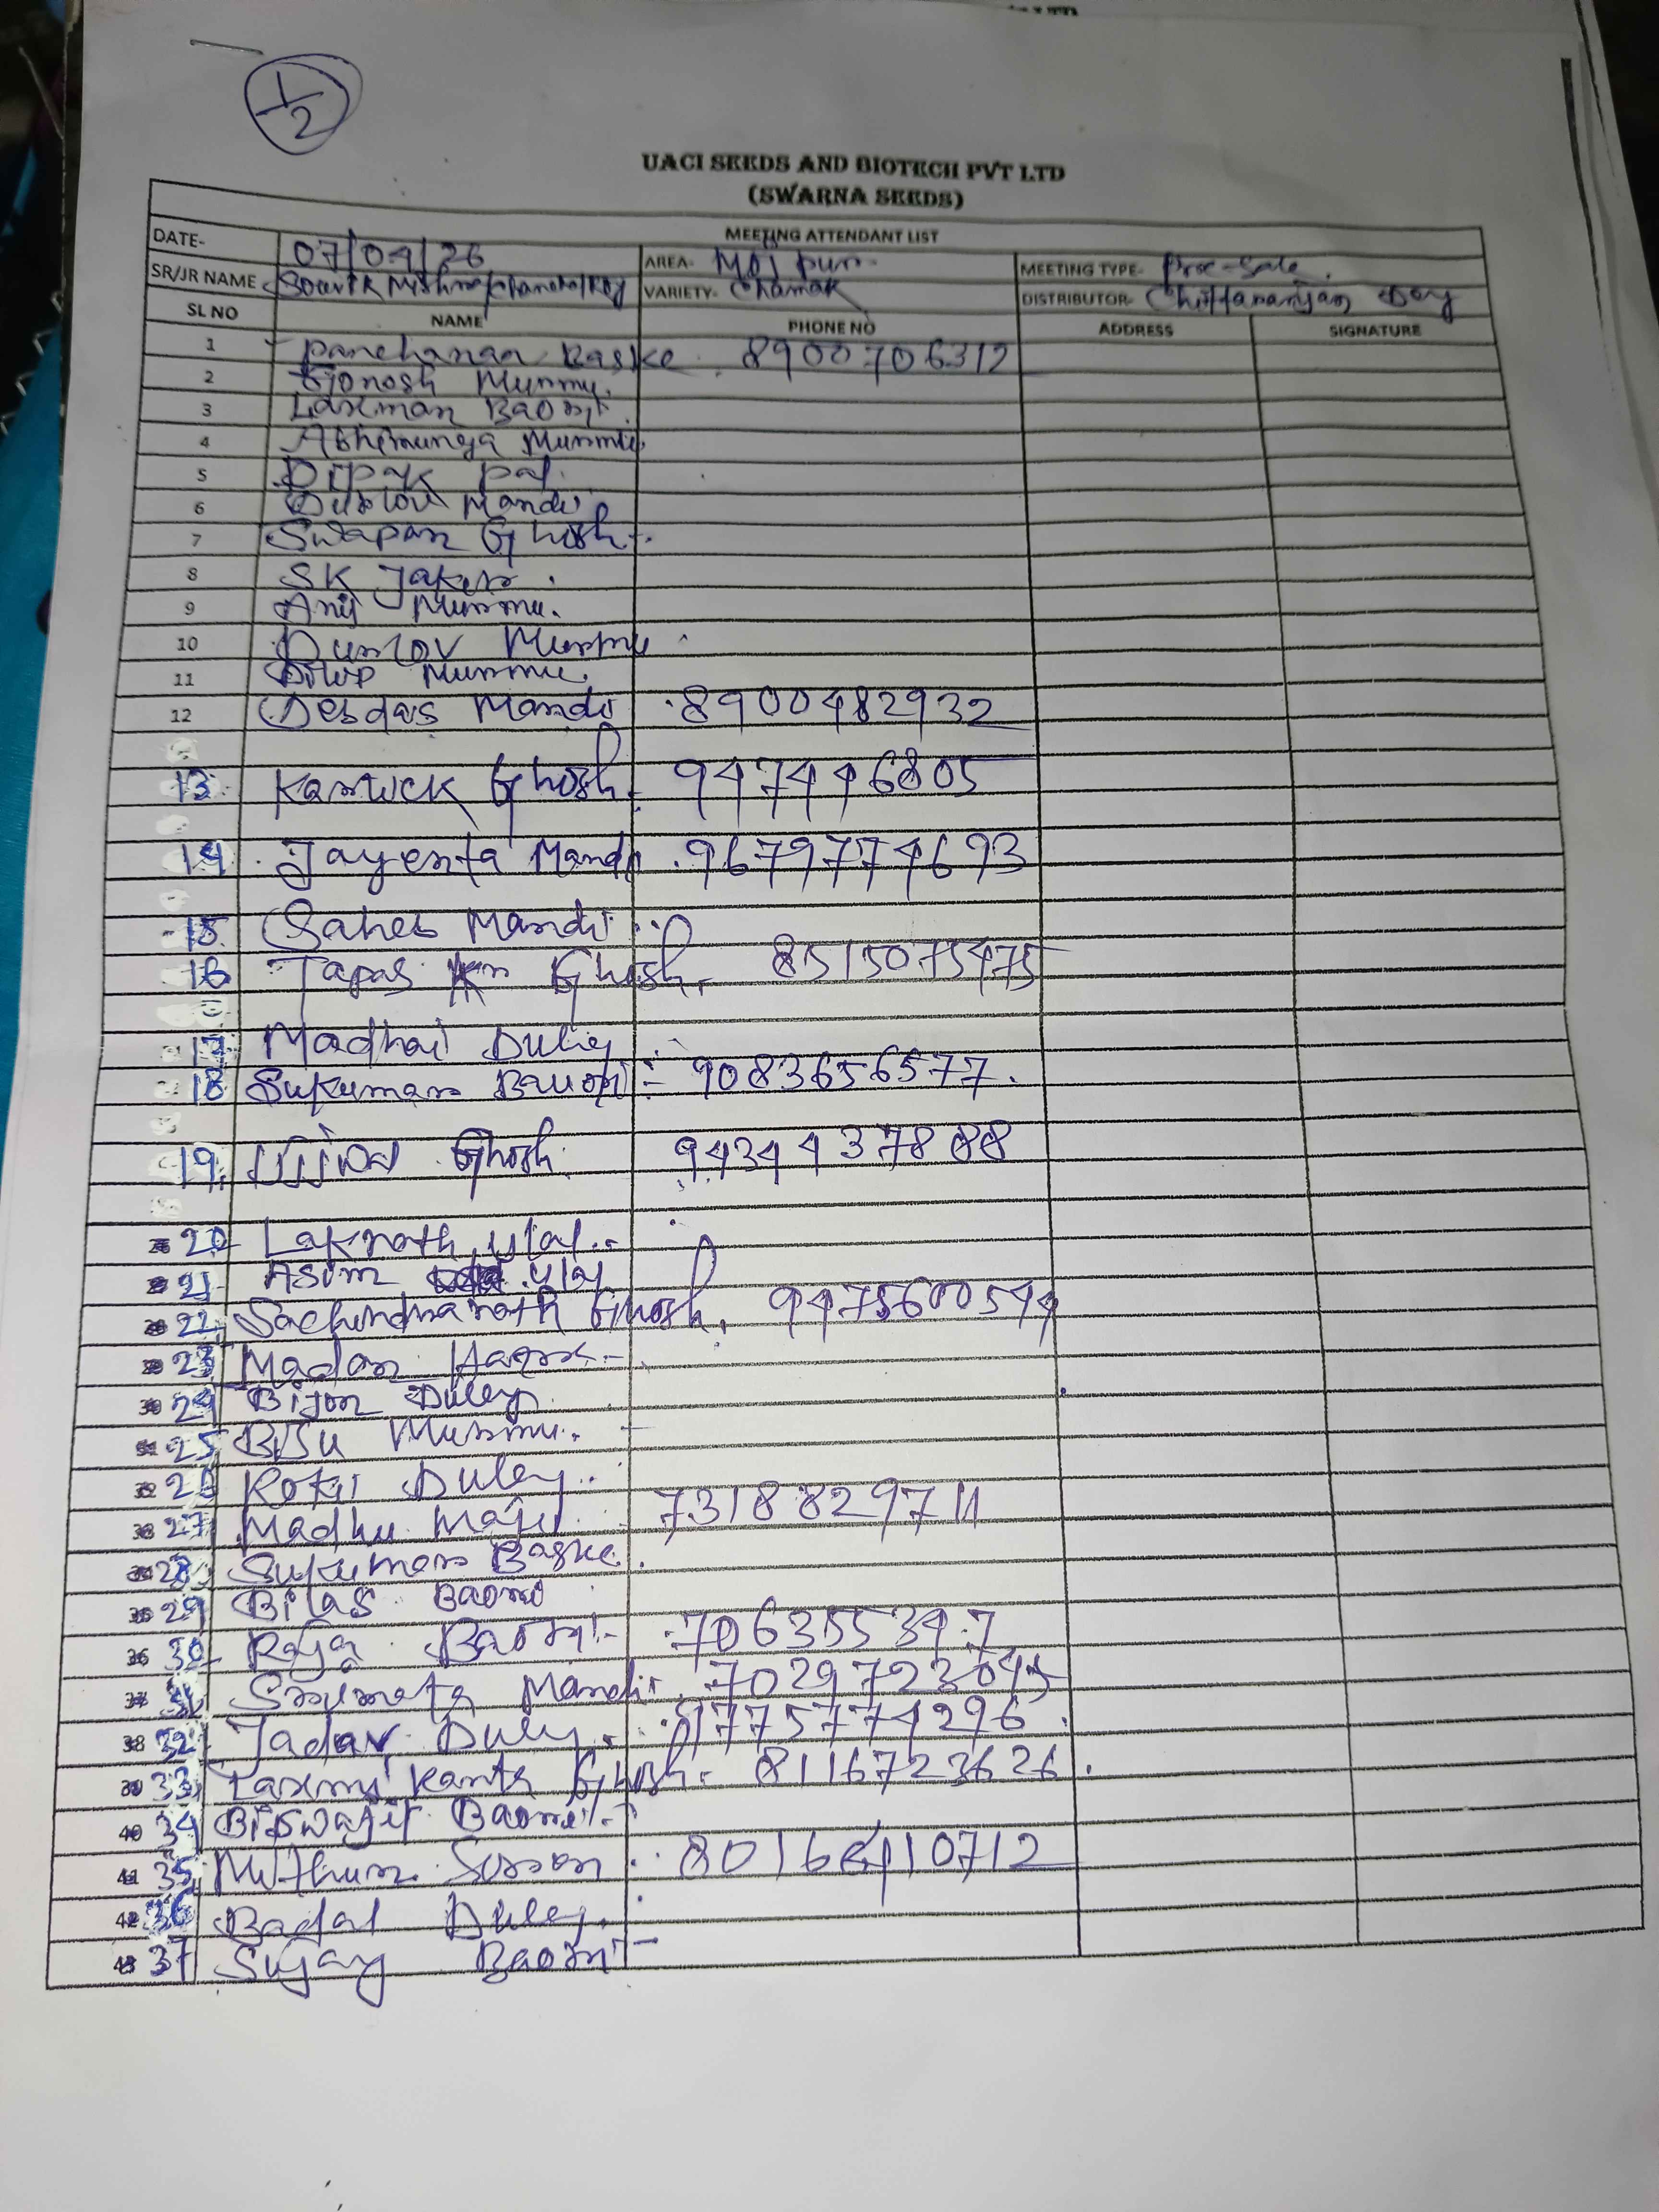 1/2
UACI SEEDS AND BIOTECH PVT LTD
(SWARNA SEEDS)
MEETING ATTENDANT LIST
DATE- 07/04/26 AREA- MOIPUR MEETING TYPE- Pre-Sale.
SR/JR NAME Souvik Mishra VARIETY- Chamak DISTRIBUTOR- Chittaranjan Dey
SL NO NAME PHONE NO ADDRESS SIGNATURE
1 Panchanan Baske 8900706312
2 Gonosh Murmu.
3 Laxman Baori
4 Abhimunya Murmu
5 Dipak pal.
6 Mandi
7 Swapan Ghosh
8 SK Jaker
9 Anil Murmu.
10 Murmu
11 Dilip Murmu.
12 Debdas Mandi 8900482932
13 Kartick Ghosh 947446805
14 Jayenta Mandi 9679774693
15 Saheb Mandi
16 Tapas Kr Ghosh 8515075475
17 Madhai Duley
18 Sukumar Bauri 9083656577.
19 Ghosh 9434437888
20
21 Asim
22 Sachindranath Ghosh. 9475600544
23 Madan
24 Bijon Duley
25 Bisu Murmu.
26 Duley
27 Madhu Maji 7318829711
28 Sukumar Baske.
29 Bilas Baori
30 Raja Baori 706355347
31 Mandi
32 Jadav Duley
33 Laxmi Kanta Ghosh. 8116723626.
34 Biswajit Baori
35 Mithun Soren
36 Badal Duley.
37 Sujay Baori